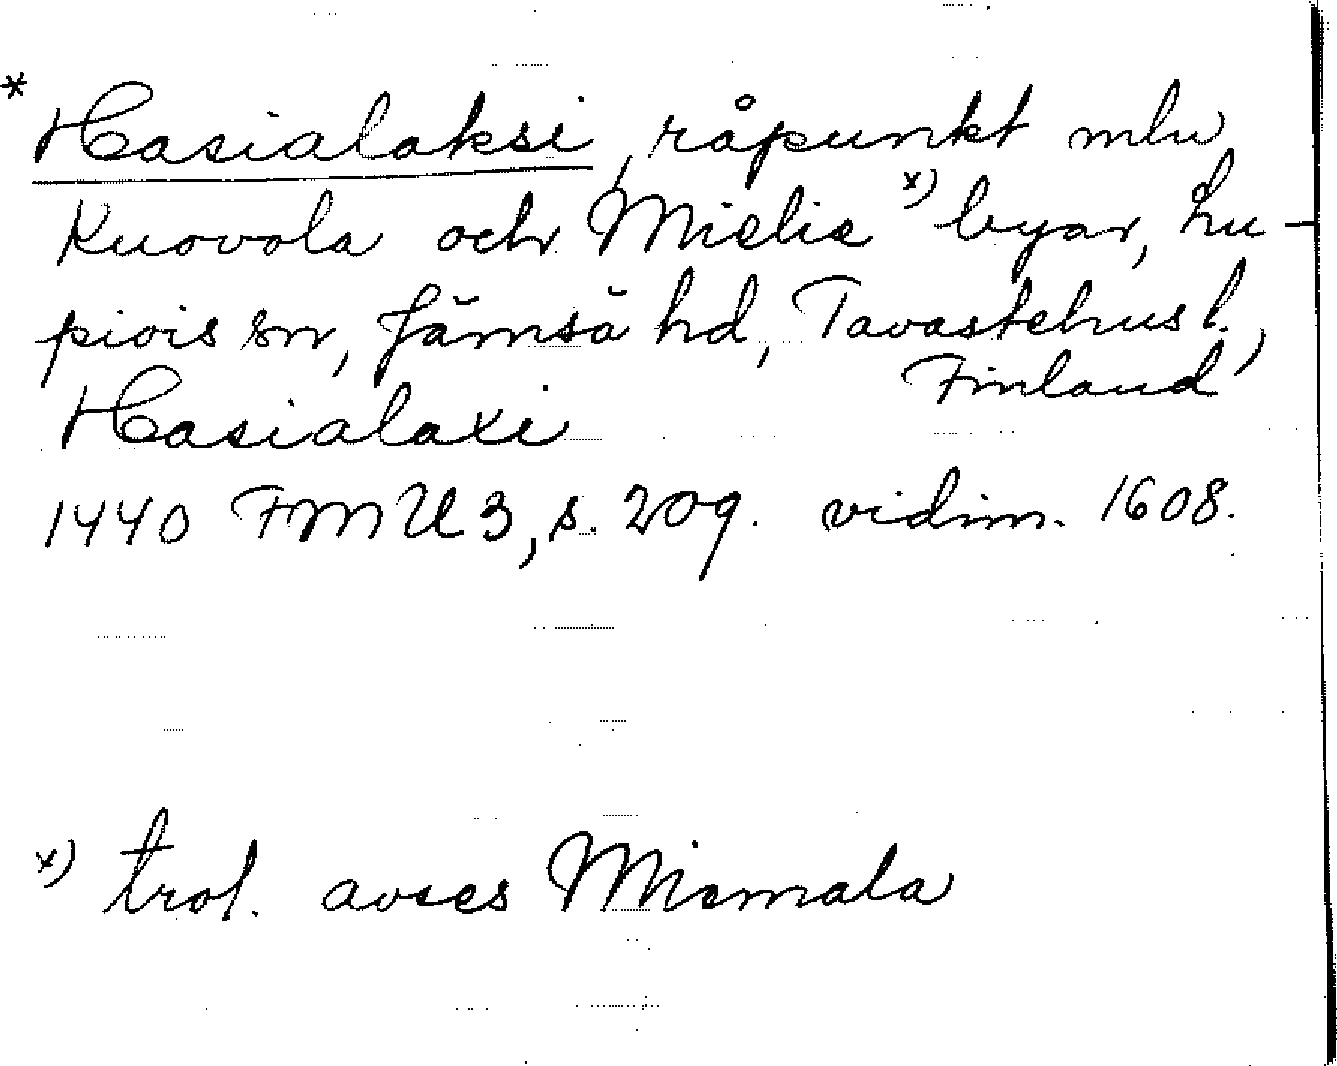 * Hasialaksi, råpunkt mlu
Kuovola och Mielie x) byar, Lu-
piois sn, Jämsä hd, Tavastehus l.,
Finland
Hasialaxi
1440 FMU 3, s. 209. vidim. 1608.
x) trol. avses Miemala